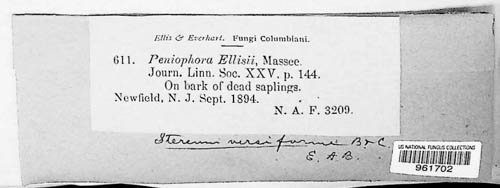 Ellis & Everhart. Fungi Columbiani.
611. Peniophora Ellisii, Massee.
Journ. Linn. Soc. XXV. p. 144.
On bark of dead saplings.
Newfield, N. J. Sept. 1894.
N. A. F. 3209.
Stereum versiforme B & C.
E. A. B.
US NATIONAL FUNGUS COLLECTIONS
961702